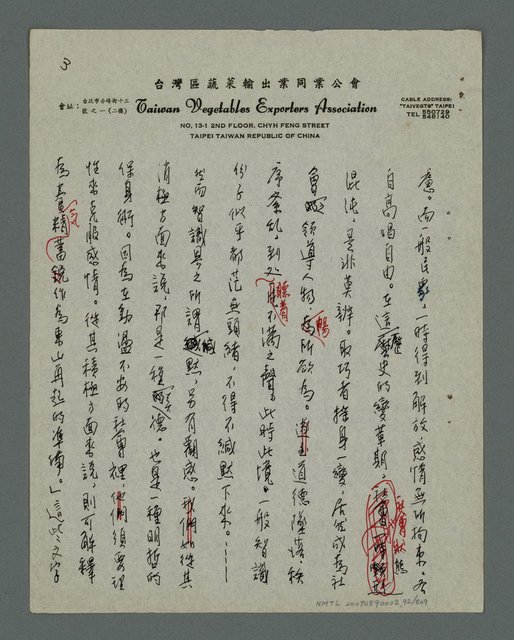 3
台灣區蔬菜輸出業同業公會
會址：台北市赤峰街十三號之一（二樓）
Taiwan Vegetables Exporters Association
CABLE ADDRESS:
"TAIVEGTS" TAIPEI
TEL 550729
548140
NO, 13-1 2ND FLOOR, CHYH FENG STREET
TAIPEI TAIWAN REPUBLIC OF CHINA
意。而一般民眾，一時得到解放，感情無所拘束，各
自高唱自由。在這歷史的變革期，社會狀態
混沌，是非莫辨。取巧者搖身一變，居然成為社
會領導人物，為所欲為。道德墜落，秩
序紊亂，到處聽着不滿之聲，此時此境。一般智識
份子似乎都茫無頭緒，不得不緘默下來。……
然而智識界之所謂緘默，另有觀感。我們如從其
消極方面來說，那是一種美德。也是一種明哲的
保身術。因為在動盪不安的社會裡，他們須要理
性來克服感情。從其積極方面來說，則可解釋
為蓄精養銳作為東山再起的準備。」這些文字
NMTL 20070590002 92/509